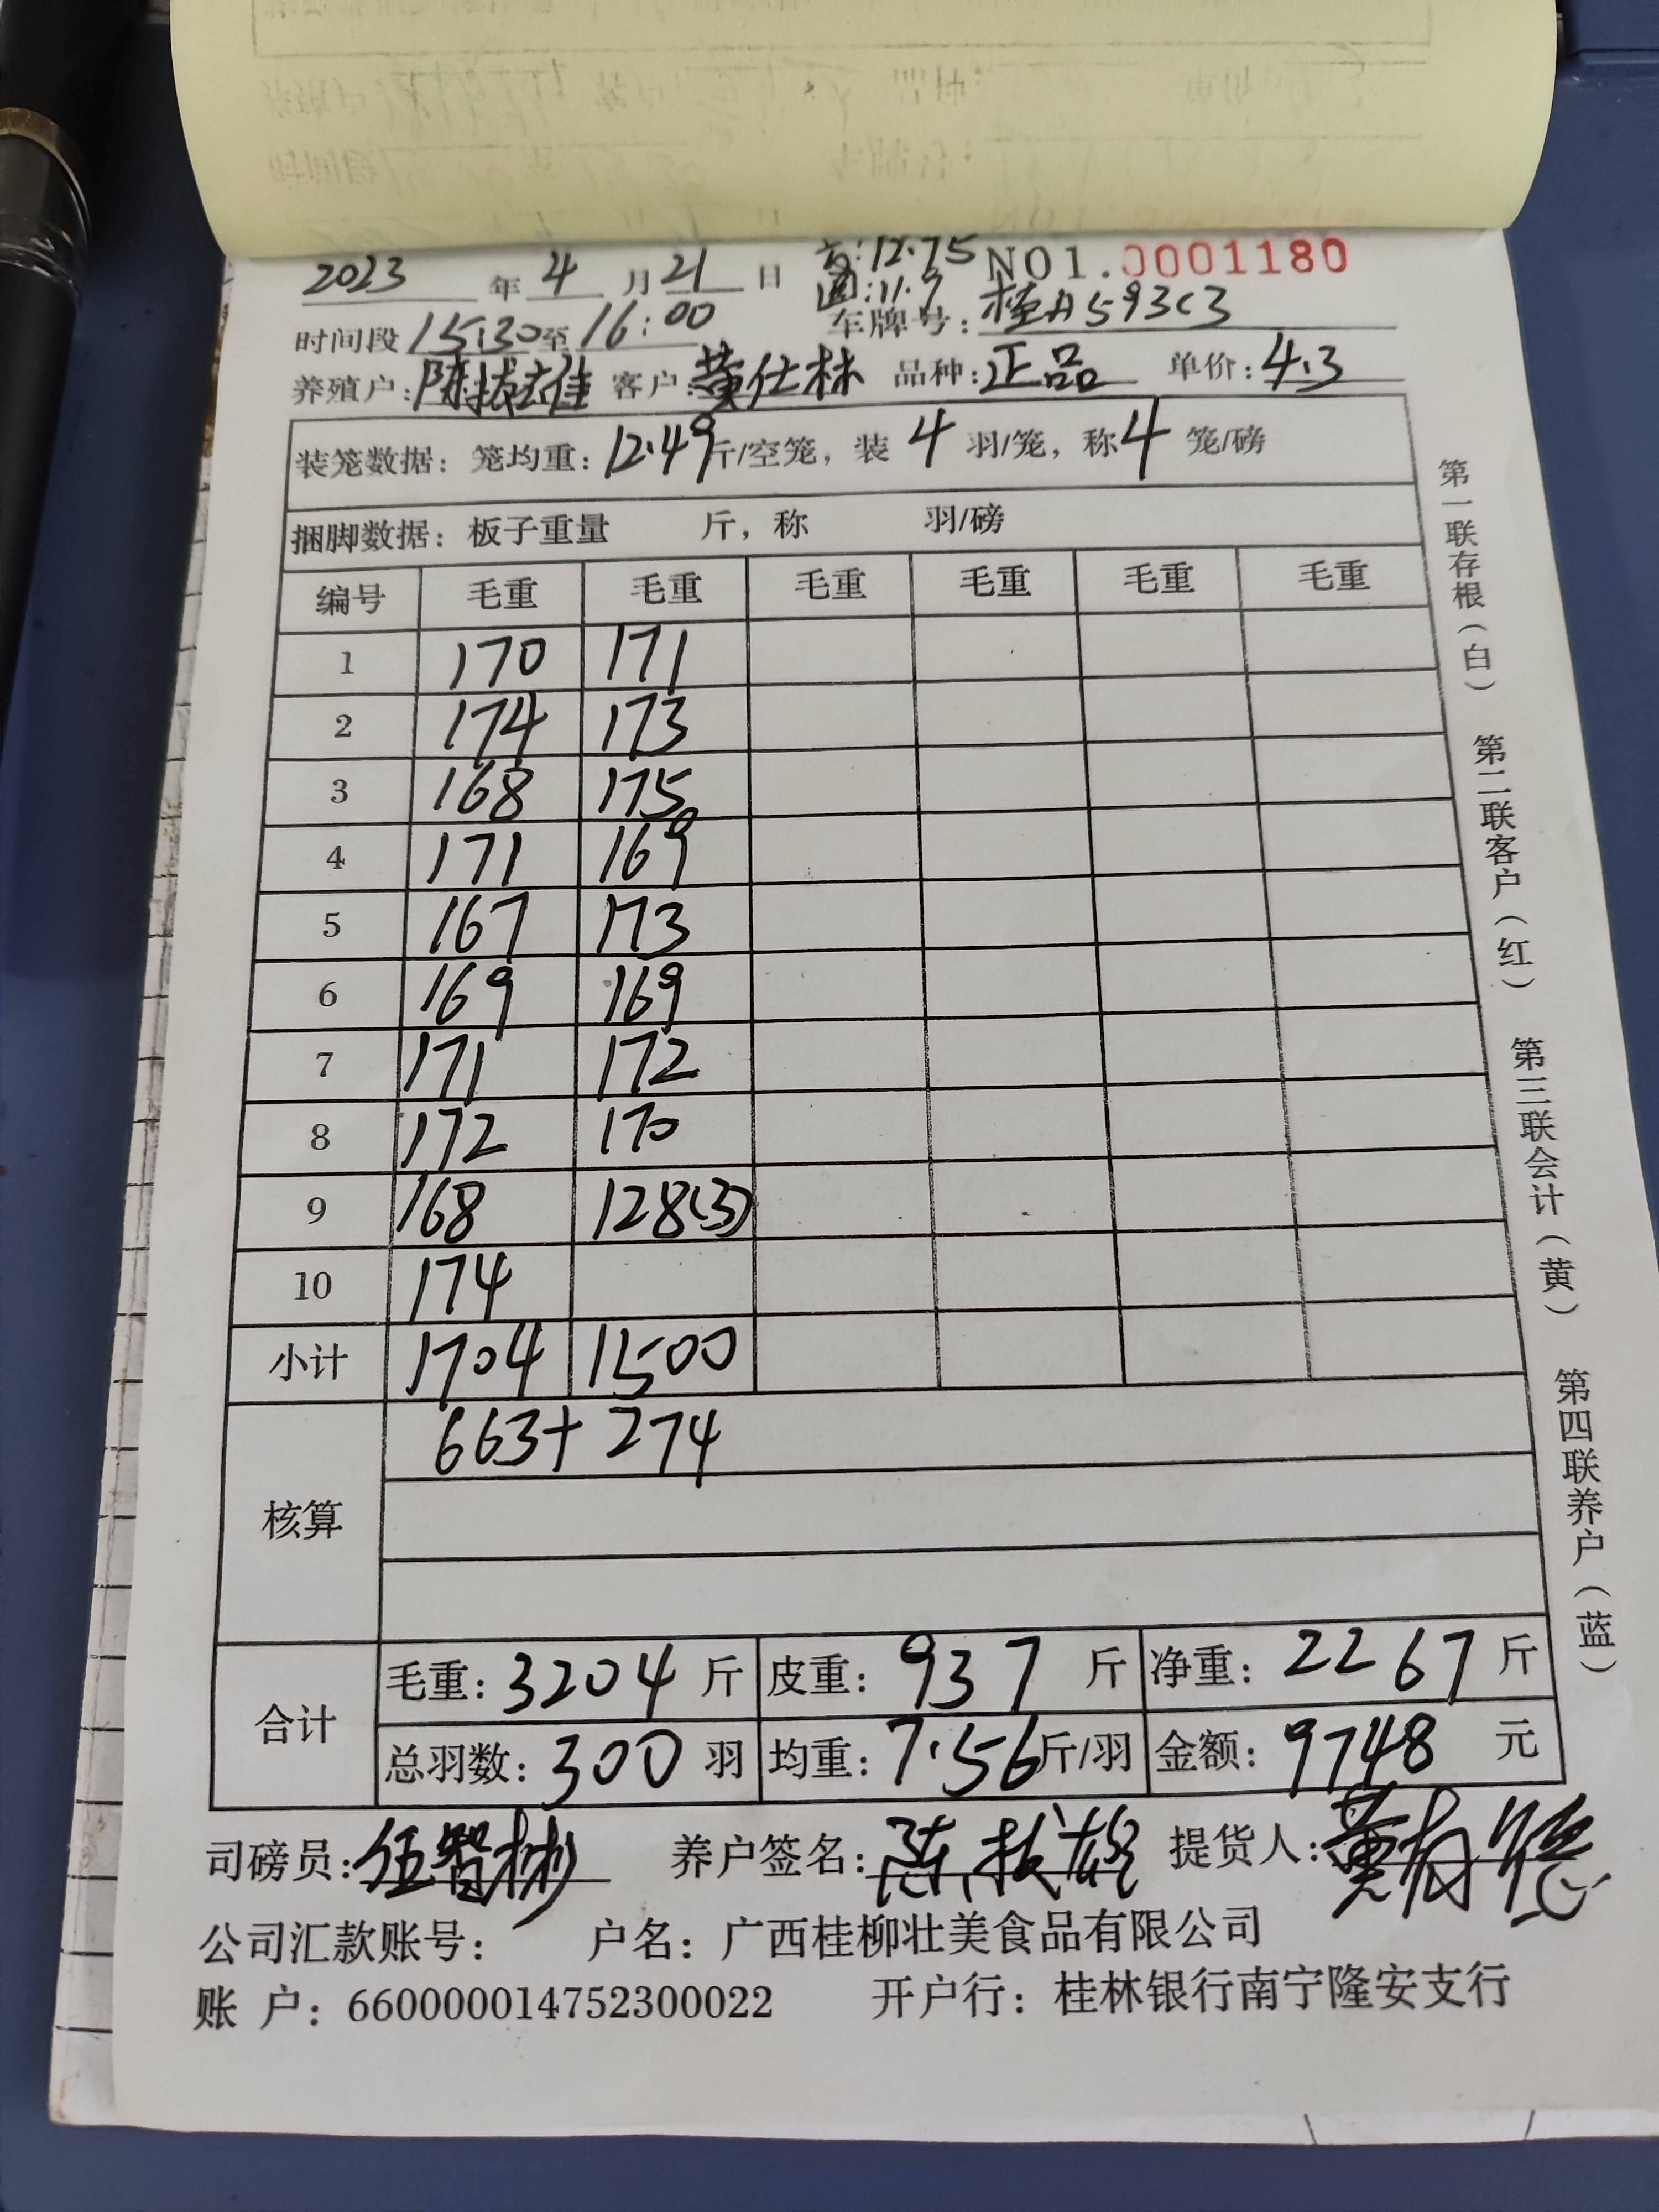 2023 年 4 月 21 日 :12.75 NO1.0001180
圆:11.9
时间段 15:30 至 16:00 车牌号: 桂A593C3
养殖户: 陈拔雄 客户: 黄仕林 品种: 正品 单价: 4.3
装笼数据: 笼均重: 12.49 斤/空笼, 装 4 羽/笼, 称 4 笼/磅
捆脚数据: 板子重量 斤, 称 羽/磅
编号 毛重 毛重 毛重 毛重 毛重 毛重
1 170 171
2 174 173
3 168 175
4 171 169
5 167 173
6 169 169
7 171 172
8 172 170
9 168 128(3)
10 174
小计 1704 1500
核算 663+274
合计 毛重: 3204 斤 皮重: 937 斤 净重: 2267 斤
总羽数: 300 羽 均重: 7.56 斤/羽 金额: 9748 元
司磅员: 伍智彬 养户签名: 陈拔雄 提货人: 黄
公司汇款账号: 户名: 广西桂柳壮美食品有限公司
账 户: 660000014752300022 开户行: 桂林银行南宁隆安支行
第一联存根（白） 第二联客户（红） 第三联会计（黄） 第四联养户（蓝）